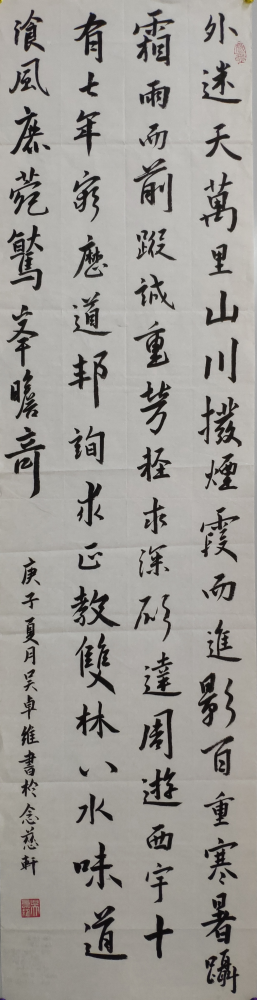 外迷天萬里山川撥煙霞而進影百重寒暑躡
霜雨而前蹤誠重勞輕求深願達周遊西宇十
有七年窮歷道邦詢求正教雙林八水味道
飡風鹿菀鷲峯瞻奇
庚子夏月吴卓維書於念慈軒